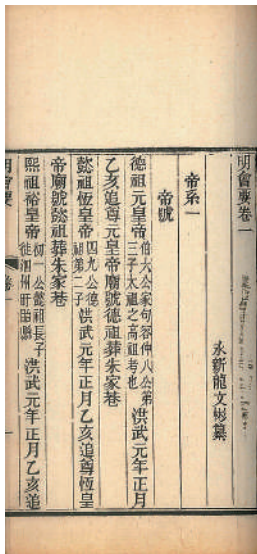 明會要卷一
永新龍文彬纂
帝系一
帝號
德祖元皇帝伯六公家句容仲八公第三子太祖之高祖考也洪武元年正月
乙亥追尊元皇帝廟號德祖葬朱家巷
懿祖恆皇帝四九公德祖第二子洪武元年正月乙亥追尊恆皇
帝廟號懿祖葬朱家巷
熙祖裕皇帝初一公懿祖長子徙泗州盱眙縣洪武元年正月乙亥追
明會要
卷一
一